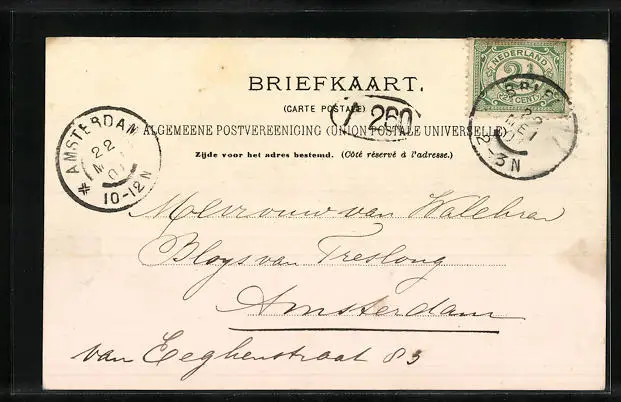 NEDERLAND
2½
CENT
BRIEFKAART.
(CARTE POSTALE)
L 260
ALGEMEENE POSTVEREENIGING (UNION POSTALE UNIVERSELLE)
Zijde voor het adres bestemd. (Côté réservé à l'adresse.)
AMSTERDAM
22
10-12N
BRIE
MEI
2-3N
Mevrouw van
Bloys van Treslong
Amsterdam
van Eeghenstraat 83